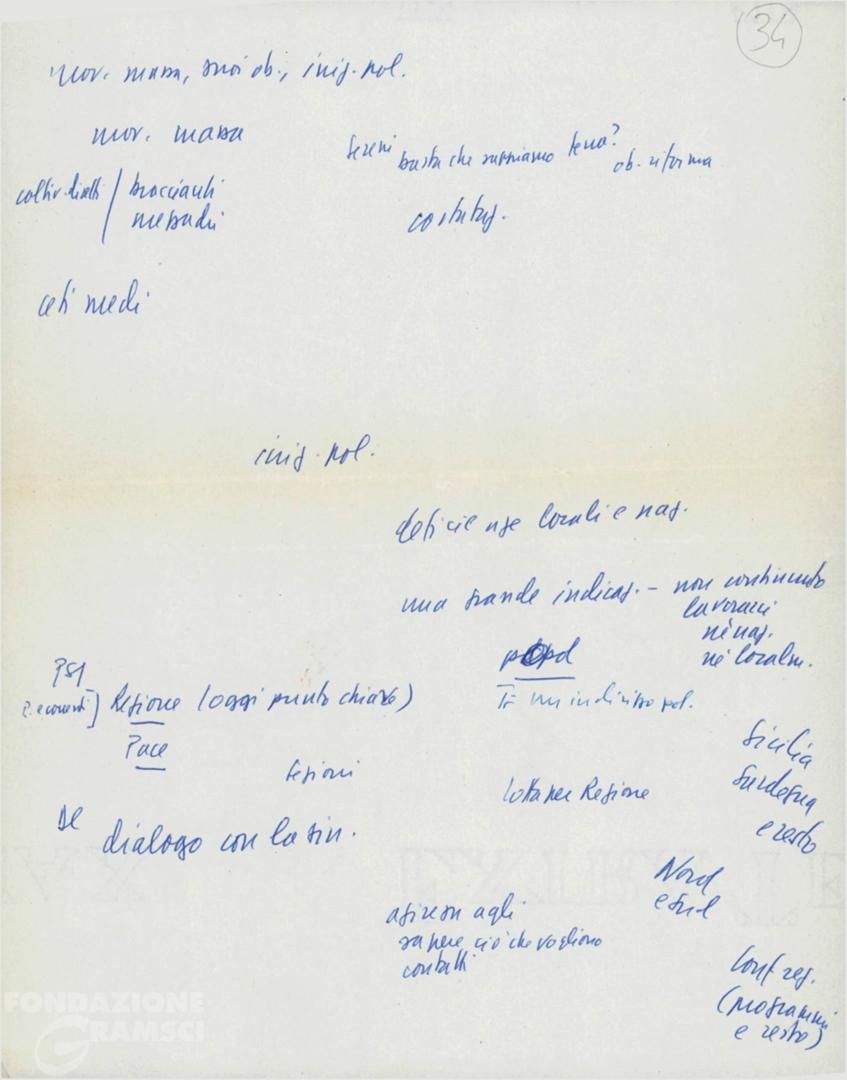 34
mov. massa, suoi ob., iniz. pol.
mov. massa
Sereni basta che sappiamo terra? ob. riforma
coltiv. diretti / braccianti
mezzadri
costituz.
ceti medi
iniz. pol.
deficienze locali e naz.
una grande indicaz. - non continuando
lavorare
nè naz.
nè localm.
PSI
Regione (oggi punto chiave)
un indirizzo pol.
Pace
Sezioni
lotta per Regione
Sicilia
Sardegna
e resto
DC
dialogo con la sin.
Nord
e sud
agire su agli
sapere ciò che vogliono
contatti
Conf. reg.
(programmi
e resto)
FONDAZIONE
GRAMSCI